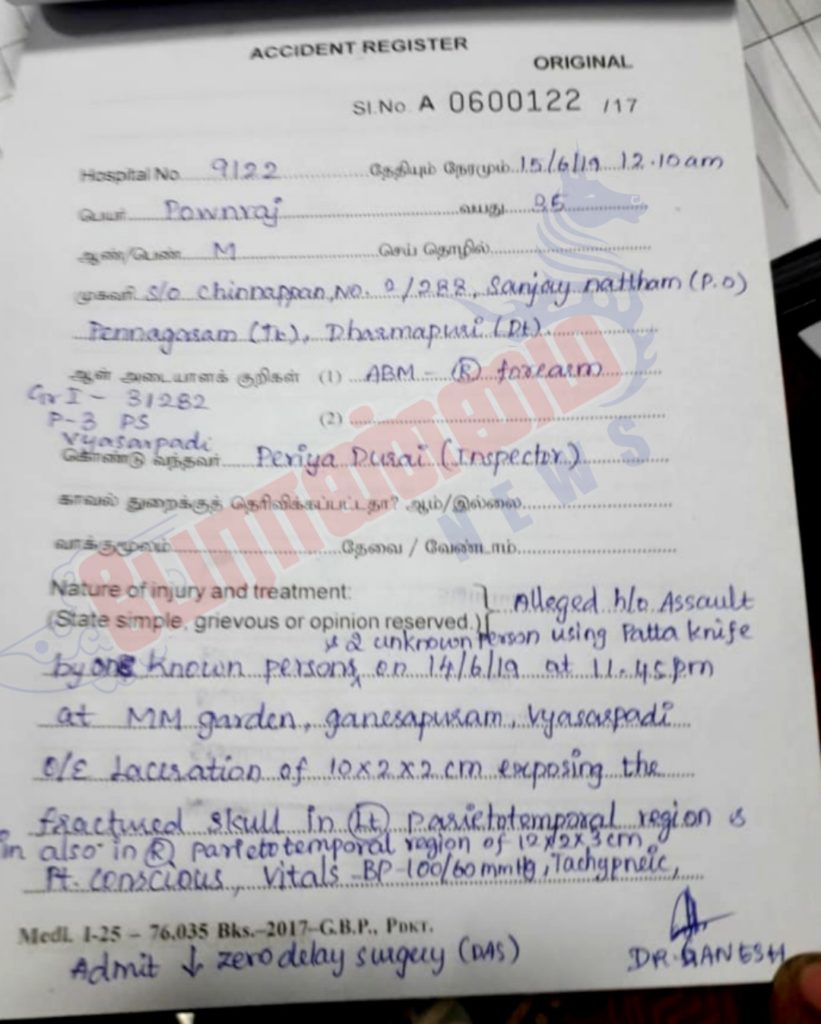 ACCIDENT REGISTER
ORIGINAL
Sl.No. A 0600122 /17
Hospital No. 9122 தேதியும் நேரமும் 15/6/19 12.10am
பெயர் Pownraj வயது 35
ஆண்/பெண் M செய் தொழில்
முகவரி S/o Chinnappan, No. 2/288, Sanjay nattham (P.O)
Pennagaram (Tk), Dharmapuri (Dt).
ஆள் அடையாளக் குறிகள் (1) ABM - (R) forearm
Gr I - 31282
P-3 PS
Vyasarpadi
(2)
கொண்டு வந்தவர் Periya Durai (Inspector)
காவல் துறைக்குத் தெரிவிக்கப்பட்டதா? ஆம்/இல்லை
வாக்குமூலம் தேவை / வேண்டாம்
பொன்னி
NEWS
Nature of injury and treatment: } Alleged h/o Assault
(State simple, grievous or opinion reserved.)
& 2 unknown Person using Patta knife
by one known persons on 14/6/19 at 11.45pm
at MM garden, ganesapuram, Vyasarpadi
O/E Laceration of 10x2x2 cm exposing the
fractured skull in (Lt) parietotemporal region &
in also in (R) parietotemporal region of 12x2x3cm
Pt. conscious, Vitals - BP - 100/60 mmHg, Tachypneic,
Medl. I-25 – 76,035 Bks.–2017–G.B.P., PDKT.
Admit ↓ zero delay surgery (DAS)
DR. GANESH